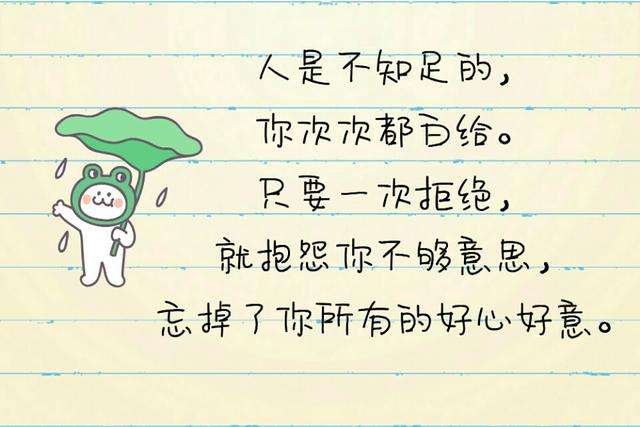 人是不知足的，
你次次都白给。
只要一次拒绝，
就抱怨你不够意思，
忘掉了你所有的好心好意。